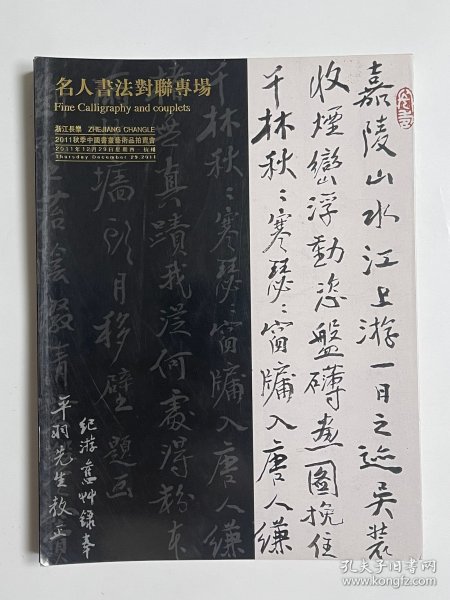 名人書法對聯專場
Fine Calligraphy and couplets
浙江長樂 ZHEJIANG CHANGLE
2011秋季中國書畫藝術品拍賣會
2011年12月29日星期四 杭州
Thursday December 29.2011
嘉陵山水江上游一日之迹吳裝
收煙巒浮動恣盤礴畫圖挽住
千林秋〻寒瑟〻窗牖入唐人縑
千林秋〻寒瑟〻窗牖入唐人縑
真蹟我從何處得粉本
墙頭月移壁題画
紀游舊艸錄奉
平羽先生教正
孔夫子旧书网